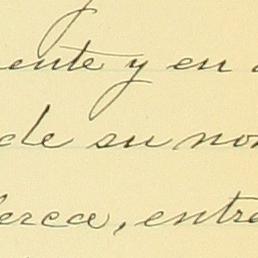 ente y en
de su nom
erca, entre